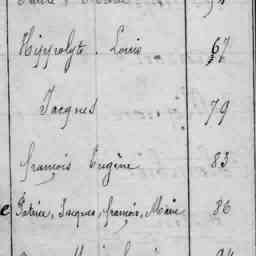 Hippolyte. Louis 67
Jacques 79
François Eugène 83
Patrice, Jacques, François, Marie 86